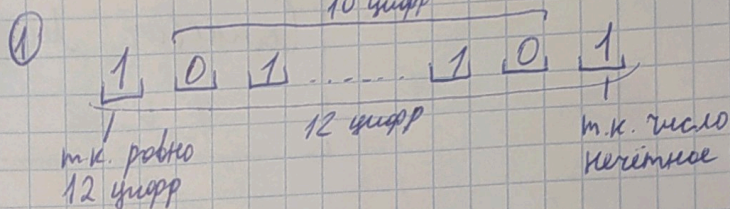 10 цифр
① 1 0 1 ...... 1 0 1
12 цифр
т.к. ровно
12 цифр
т.к. число
нечётное